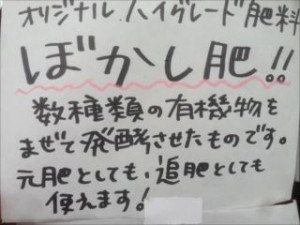 オリジナルハイグレード肥料
ぼかし肥!!
数種類の有機物を
まぜて発酵させたものです。
元肥としても、追肥としても
使えます!